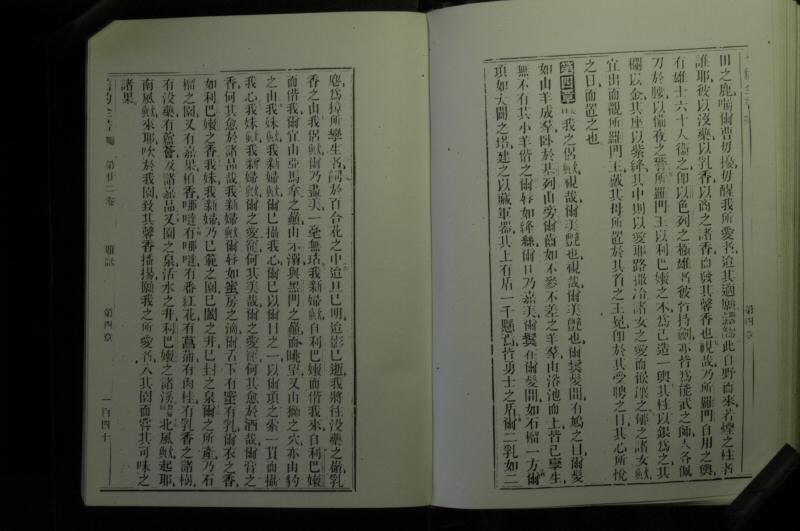 田之鹿、囑爾曹毋擾毋醒我所愛者、迨其適願、此自野而來、若煙之柱者
誰耶、彼以沒藥以乳香、以商之諸香而發其馨香也、視哉、乃所羅門自用之輿、
有雄士六十人衞之、卽以色列之極雄者、彼皆持劒、亦皆爲能武之師、人各佩
刀於腰、以備夜之警、所羅門王以利巴嫩之木爲己造一輿、其柱以銀爲之、其
欄以金、其座以紫絲、其中則以愛耶路撒冷諸女之愛而嵌讓之、郇之諸女歟、
宜出而觀所羅門王、戴其母所置於其首之王冕、卽於其受聘之日、其心所悅
之日、而置之也
第四章 我之侶歟、視哉、爾美艷也、視哉、爾美艷也、爾鬟髮間有鳩之目、爾髮
如山羊成羣、臥於基列山旁、爾齒如不參不差之羊羣、由浴池而上、皆已孿生、
無不有其小羊偕之、爾脣如絳絲、爾口乃嘉美、爾鬢在爾髮間、如石榴一方、爾
項如大闢之塔、建之以藏軍器、其上有盾一千懸焉、皆勇士之盾、爾二乳如二
麀、爲獐所孿生者、飼於百合花之中、迨旦已明、迨影已逝、我將往沒藥之嶺、乳
香之山、我侶歟、爾乃盡美、一毫無玷、我新婦歟、自利巴嫩而偕我來、自利巴嫩
而偕我、爾宜由亞馬拿之嶺、由示溺與黑門之嶺而眺望、又由獅之穴、亦由豹
之山、我妹歟、我新婦歟、爾已攝我心、爾已以爾目之一、以爾項之索一貫而攝
我心、我妹歟、我新婦歟、爾之愛寵何其美哉、爾之愛寵何其愈於酒哉、爾膏之
香何其愈於諸品哉、我新婦歟、爾脣如蜜房之滴、爾舌下有蜜有乳、爾衣之香、
如利巴嫩之香、我妹我新婦、乃已範之園、已闔之井、已封之泉、爾之所產、乃石
榴之園、又有嘉果、柏香、哪噠、有哪噠、有番紅花、有菖蒲、有肉桂、有乳香之諸樹、
有沒藥、有蘆薈、及諸嘉品、又園之泉、活水之井、利巴嫩之諸溪、北風歟起耶、
南風歟來耶、吹於我園、致其馨香播揚、願我之所愛者、入其園而嘗其可味之
諸果、
第廿二卷 雅歌 第四章 一百四十
第四章